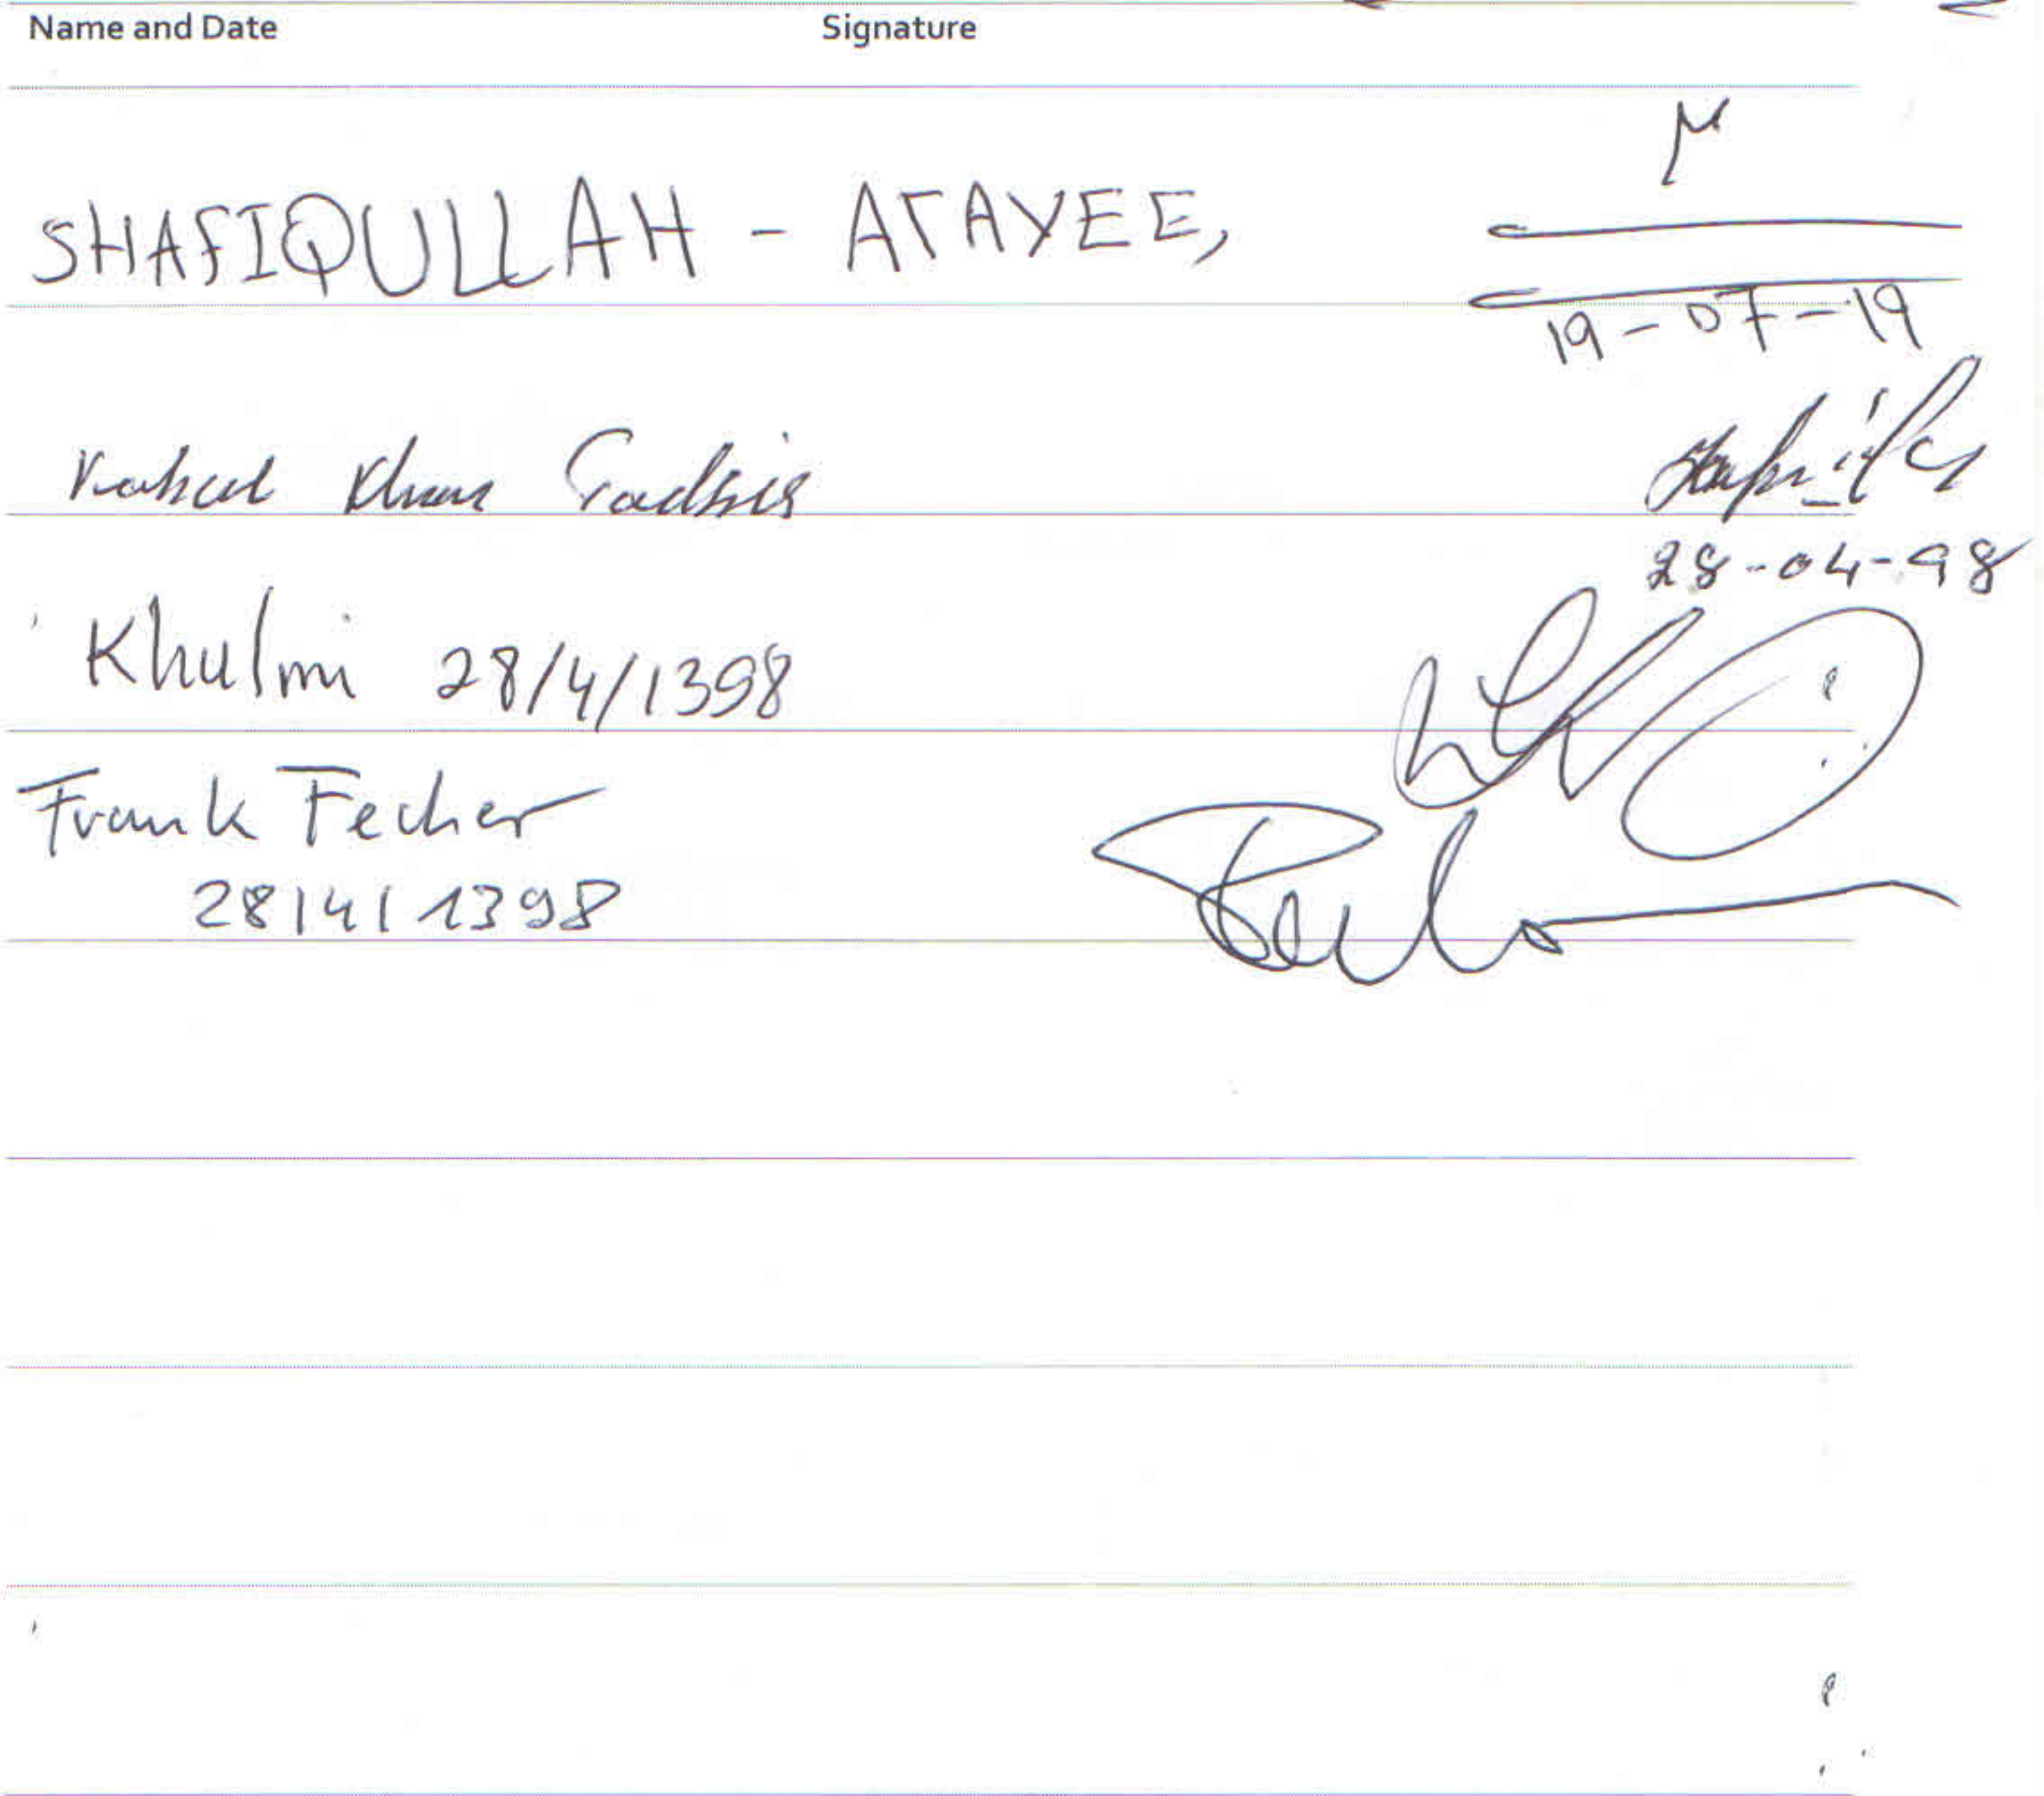 Name and Date Signature
SHAFIQULLAH - ATAYEE,
19-07-19
Khan
28-04-98
Khulmi 28/4/1398
Frank Fecher
28/4/1398